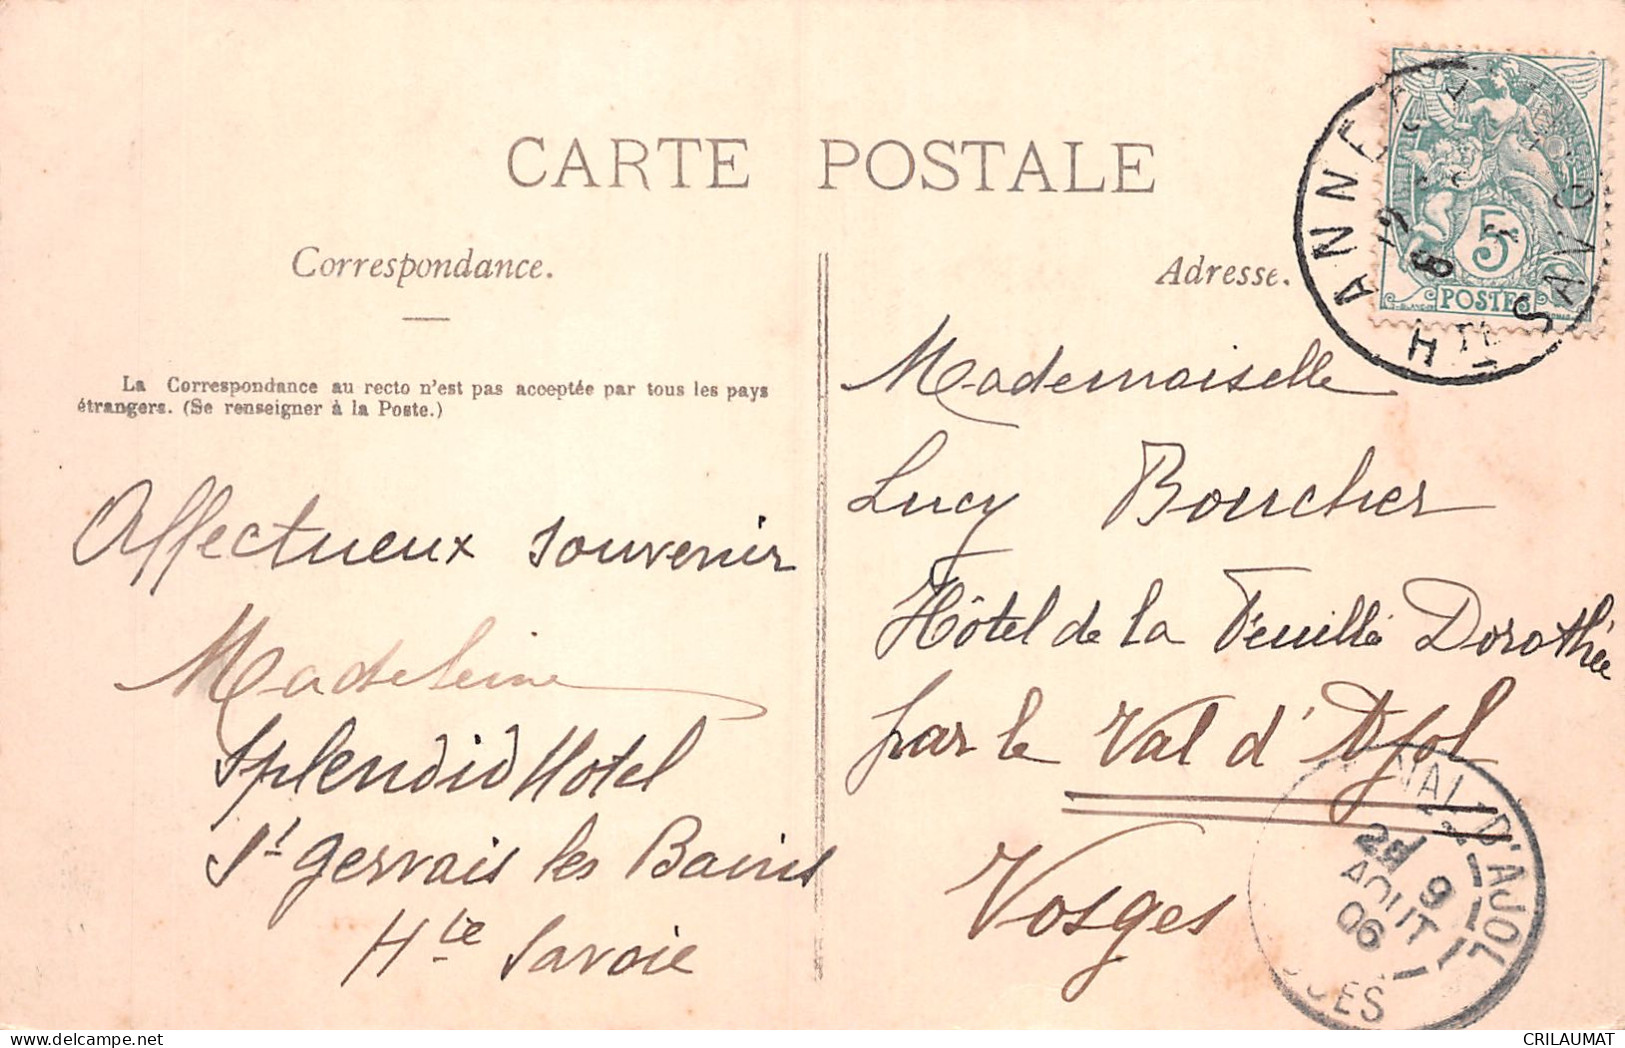 CARTE POSTALE
Correspondance.
La Correspondance au recto n'est pas acceptée par tous les pays
étrangers. (Se renseigner à la Poste.)
Affectueux souvenir
Madeleine
Splendid Hotel
St Gervais les Bains
Hte Savoie
Adresse.
Mademoiselle
Lucy Boucher
Hôtel de la Feuillé Dorothée
par le Val d'Ajol
Vosges
5
POSTES
Hte SAVOIE
VAL D'AJOL
AOUT
06
CRILAUMAT